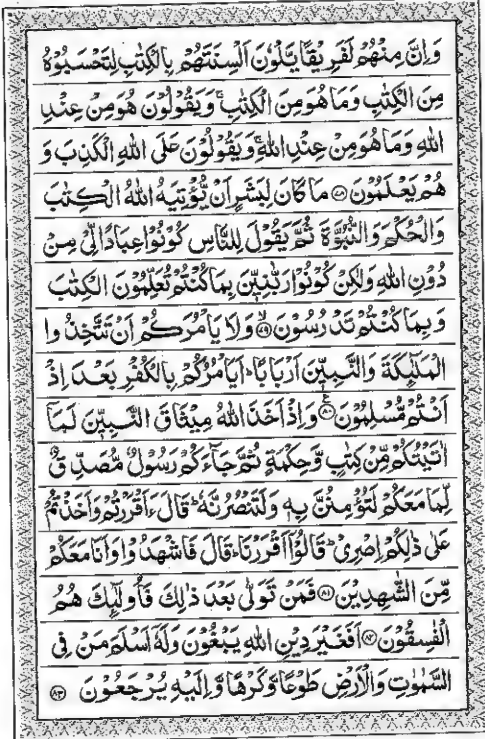 وَاِنَّ مِنْهُمْ لَفَرِيْقًا يَّلْوٗنَ اَلْسِنَتَهُمْ بِالْكِتٰبِ لِتَحْسَبُوْهُ
مِنَ الْكِتٰبِ وَمَا هُوَ مِنَ الْكِتٰبِ ۚ وَيَقُوْلُوْنَ هُوَ مِنْ عِنْدِ
اللّٰهِ وَمَا هُوَ مِنْ عِنْدِ اللّٰهِ ۚ وَيَقُوْلُوْنَ عَلَى اللّٰهِ الْكَذِبَ وَ
هُمْ يَعْلَمُوْنَ ﴿۷۸﴾ مَا كَانَ لِبَشَرٍ اَنْ يُّؤْتِيَهُ اللّٰهُ الْكِتٰبَ
وَالْحُكْمَ وَالنُّبُوَّةَ ثُمَّ يَقُوْلَ لِلنَّاسِ كُوْنُوْا عِبَادًا لِّيْ مِنْ
دُوْنِ اللّٰهِ وَلٰكِنْ كُوْنُوْا رَبّٰنِيّٖنَ بِمَا كُنْتُمْ تُعَلِّمُوْنَ الْكِتٰبَ
وَبِمَا كُنْتُمْ تَدْرُسُوْنَ ﴿۷۹﴾ۙ وَلَا يَاْمُرَكُمْ اَنْ تَتَّخِذُوا
الْمَلٰٓئِكَةَ وَالنَّبِيّٖنَ اَرْبَابًا ؕ اَيَاْمُرُكُمْ بِالْكُفْرِ بَعْدَ اِذْ
اَنْتُمْ مُّسْلِمُوْنَ ﴿۸۰﴾ۧ وَاِذْ اَخَذَ اللّٰهُ مِيْثَاقَ النَّبِيّٖنَ لَمَاۤ
اٰتَيْتُكُمْ مِّنْ كِتٰبٍ وَّحِكْمَةٍ ثُمَّ جَآءَكُمْ رَسُوْلٌ مُّصَدِّقٌ
لِّمَا مَعَكُمْ لَتُؤْمِنُنَّ بِهٖ وَلَتَنْصُرُنَّهٗ ؕ قَالَ ءَاَقْرَرْتُمْ وَاَخَذْتُمْ
عَلٰى ذٰلِكُمْ اِصْرِيْ ؕ قَالُوْۤا اَقْرَرْنَا ؕ قَالَ فَاشْهَدُوْا وَاَنَا مَعَكُمْ
مِّنَ الشّٰهِدِيْنَ ﴿۸۱﴾ فَمَنْ تَوَلّٰى بَعْدَ ذٰلِكَ فَاُولٰٓئِكَ هُمُ
الْفٰسِقُوْنَ ﴿۸۲﴾ اَفَغَيْرَ دِيْنِ اللّٰهِ يَبْغُوْنَ وَلَهٗۤ اَسْلَمَ مَنْ فِي
السَّمٰوٰتِ وَالْاَرْضِ طَوْعًا وَّكَرْهًا وَّاِلَيْهِ يُرْجَعُوْنَ ﴿۸۳﴾